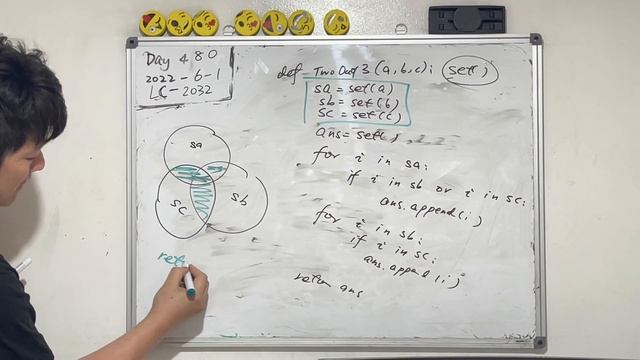 Day 480
2022-6-1
LC-2032
def TwoOut3(a,b,c): set()
sa = set(a)
sb = set(b)
sc = set(c)
ans = set
for i in sa:
if i in sb or i in sc:
ans.append(i)
for i in sb:
if i in sc:
ans.append(i)
return ans
sa
sc
sb
ret